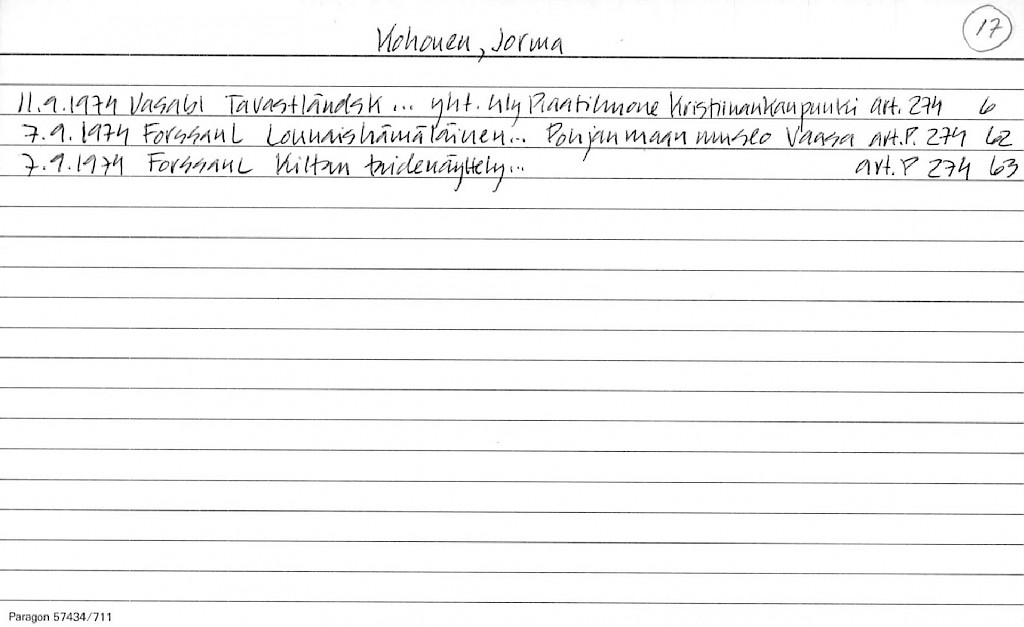 Kohonen, Jorma
17
11.9.1974 Vasabl Tavastländsk ... yht. nly Kristiinankaupunki art. 274 6
7.9.1974 ForssanL Lounaishämäläinen... Pohjanmaan museo Vaasa art.P. 274 62
7.9.1974 ForssanL Killan taidenäyttely... art. P 274 63
Paragon 57434/711